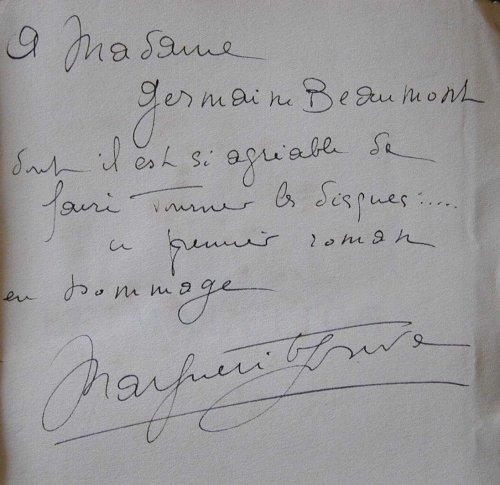 A Madame
Germaine Beaumont
dont il est si agréable de
faire tourner les disques.....
ce premier roman
en hommage
Marguerite